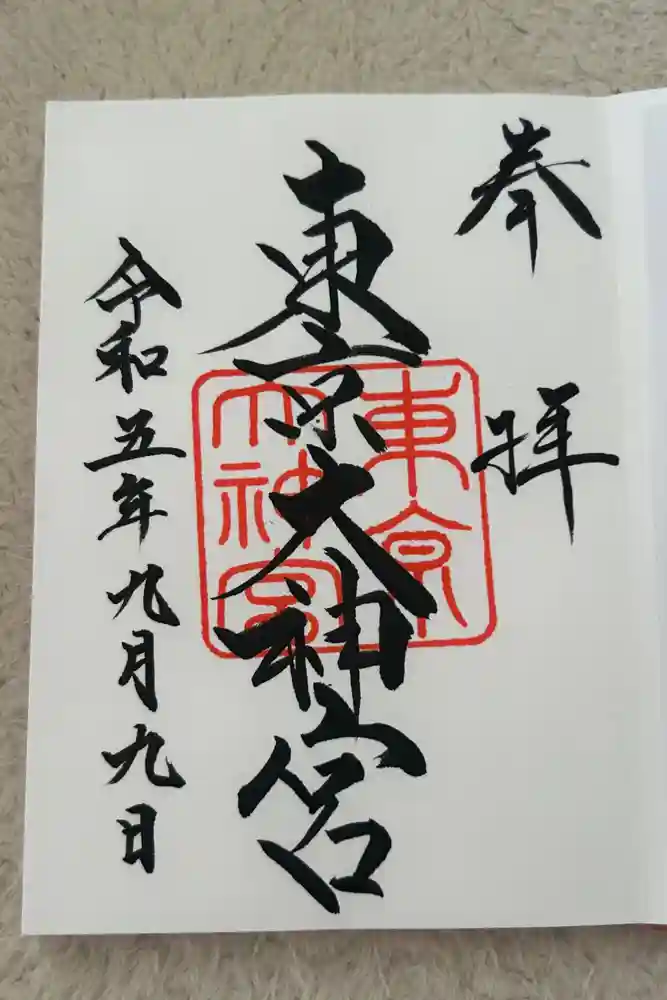 奉拝
東京大神宮
東京
大神宮
令和五年九月九日